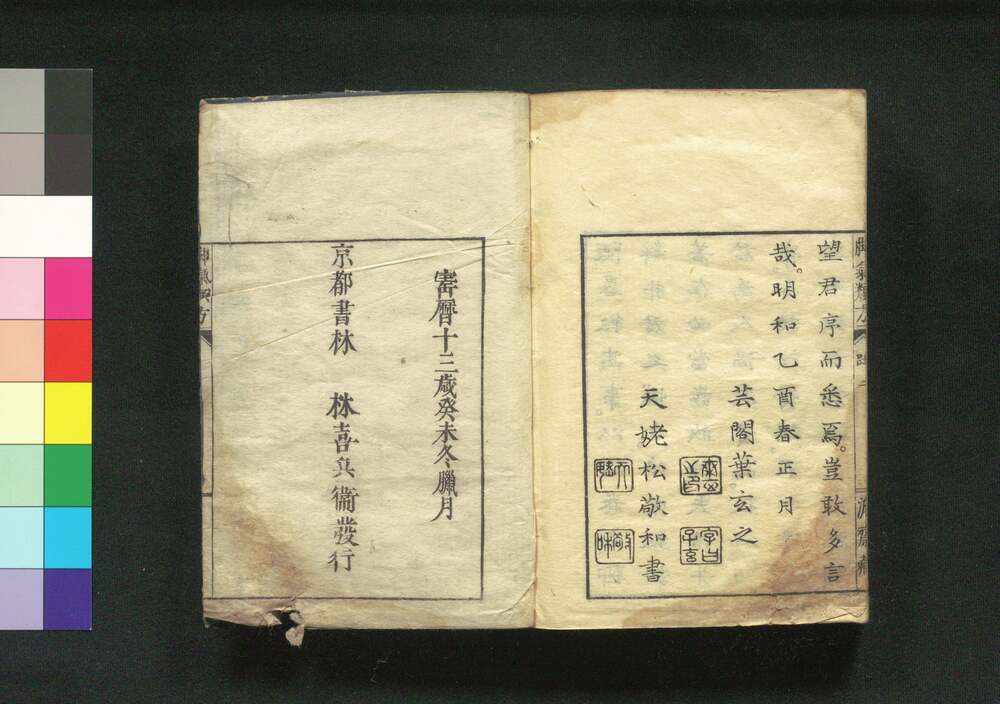 望君序而悉焉。豈敢多言
哉。明和乙酉春正月
芸閣葉玄之
天姥松敬和書
字曰子玄
寳曆十三歳癸未冬臘月
京都書林　林喜兵衞發行